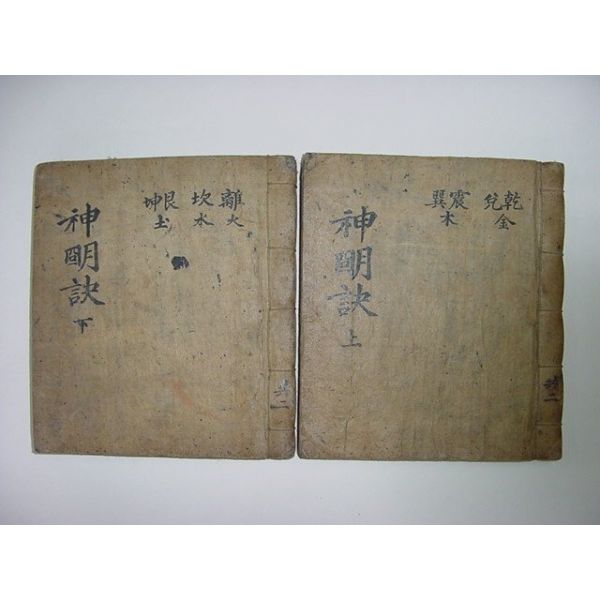 乾兌
金
震巽
木
神明訣
上
共二
離
火
坎
水
艮坤
土
神明訣
下
共二